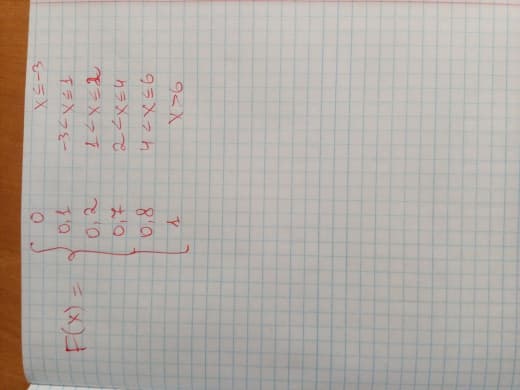 0 x ≤ -3
0,1 -3 < x ≤ 1
0,2 1 < x ≤ 2
F(x) = { 0,7 2 < x ≤ 4
0,8 4 < x ≤ 6
1 x > 6